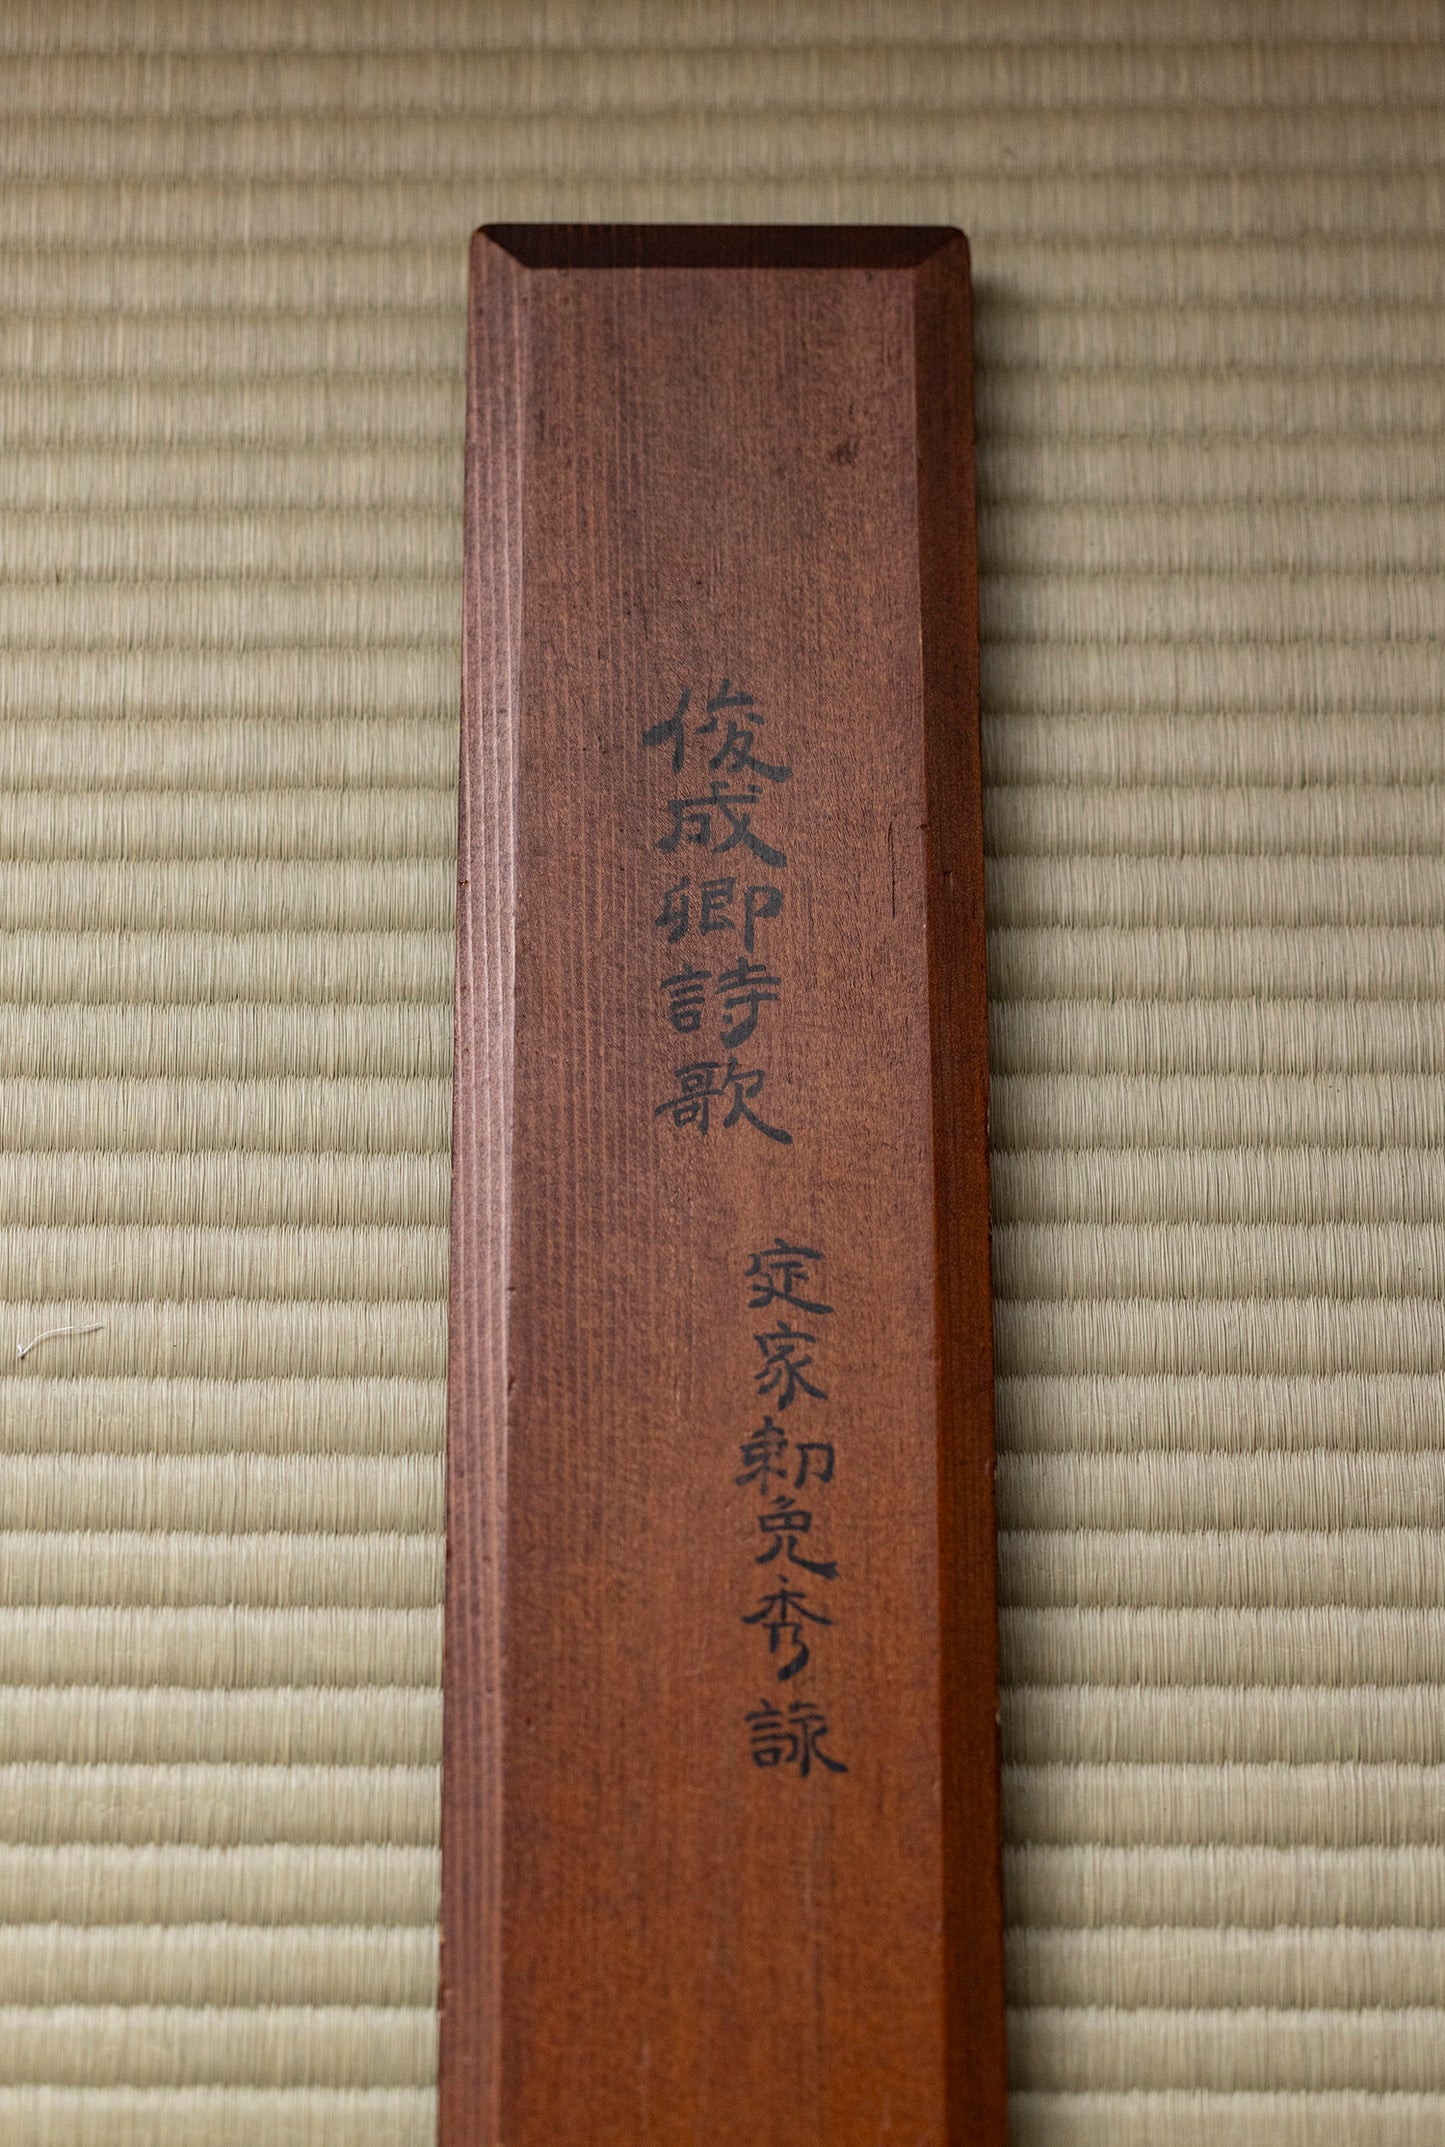 俊成卿詩歌
定家勅免秀詠